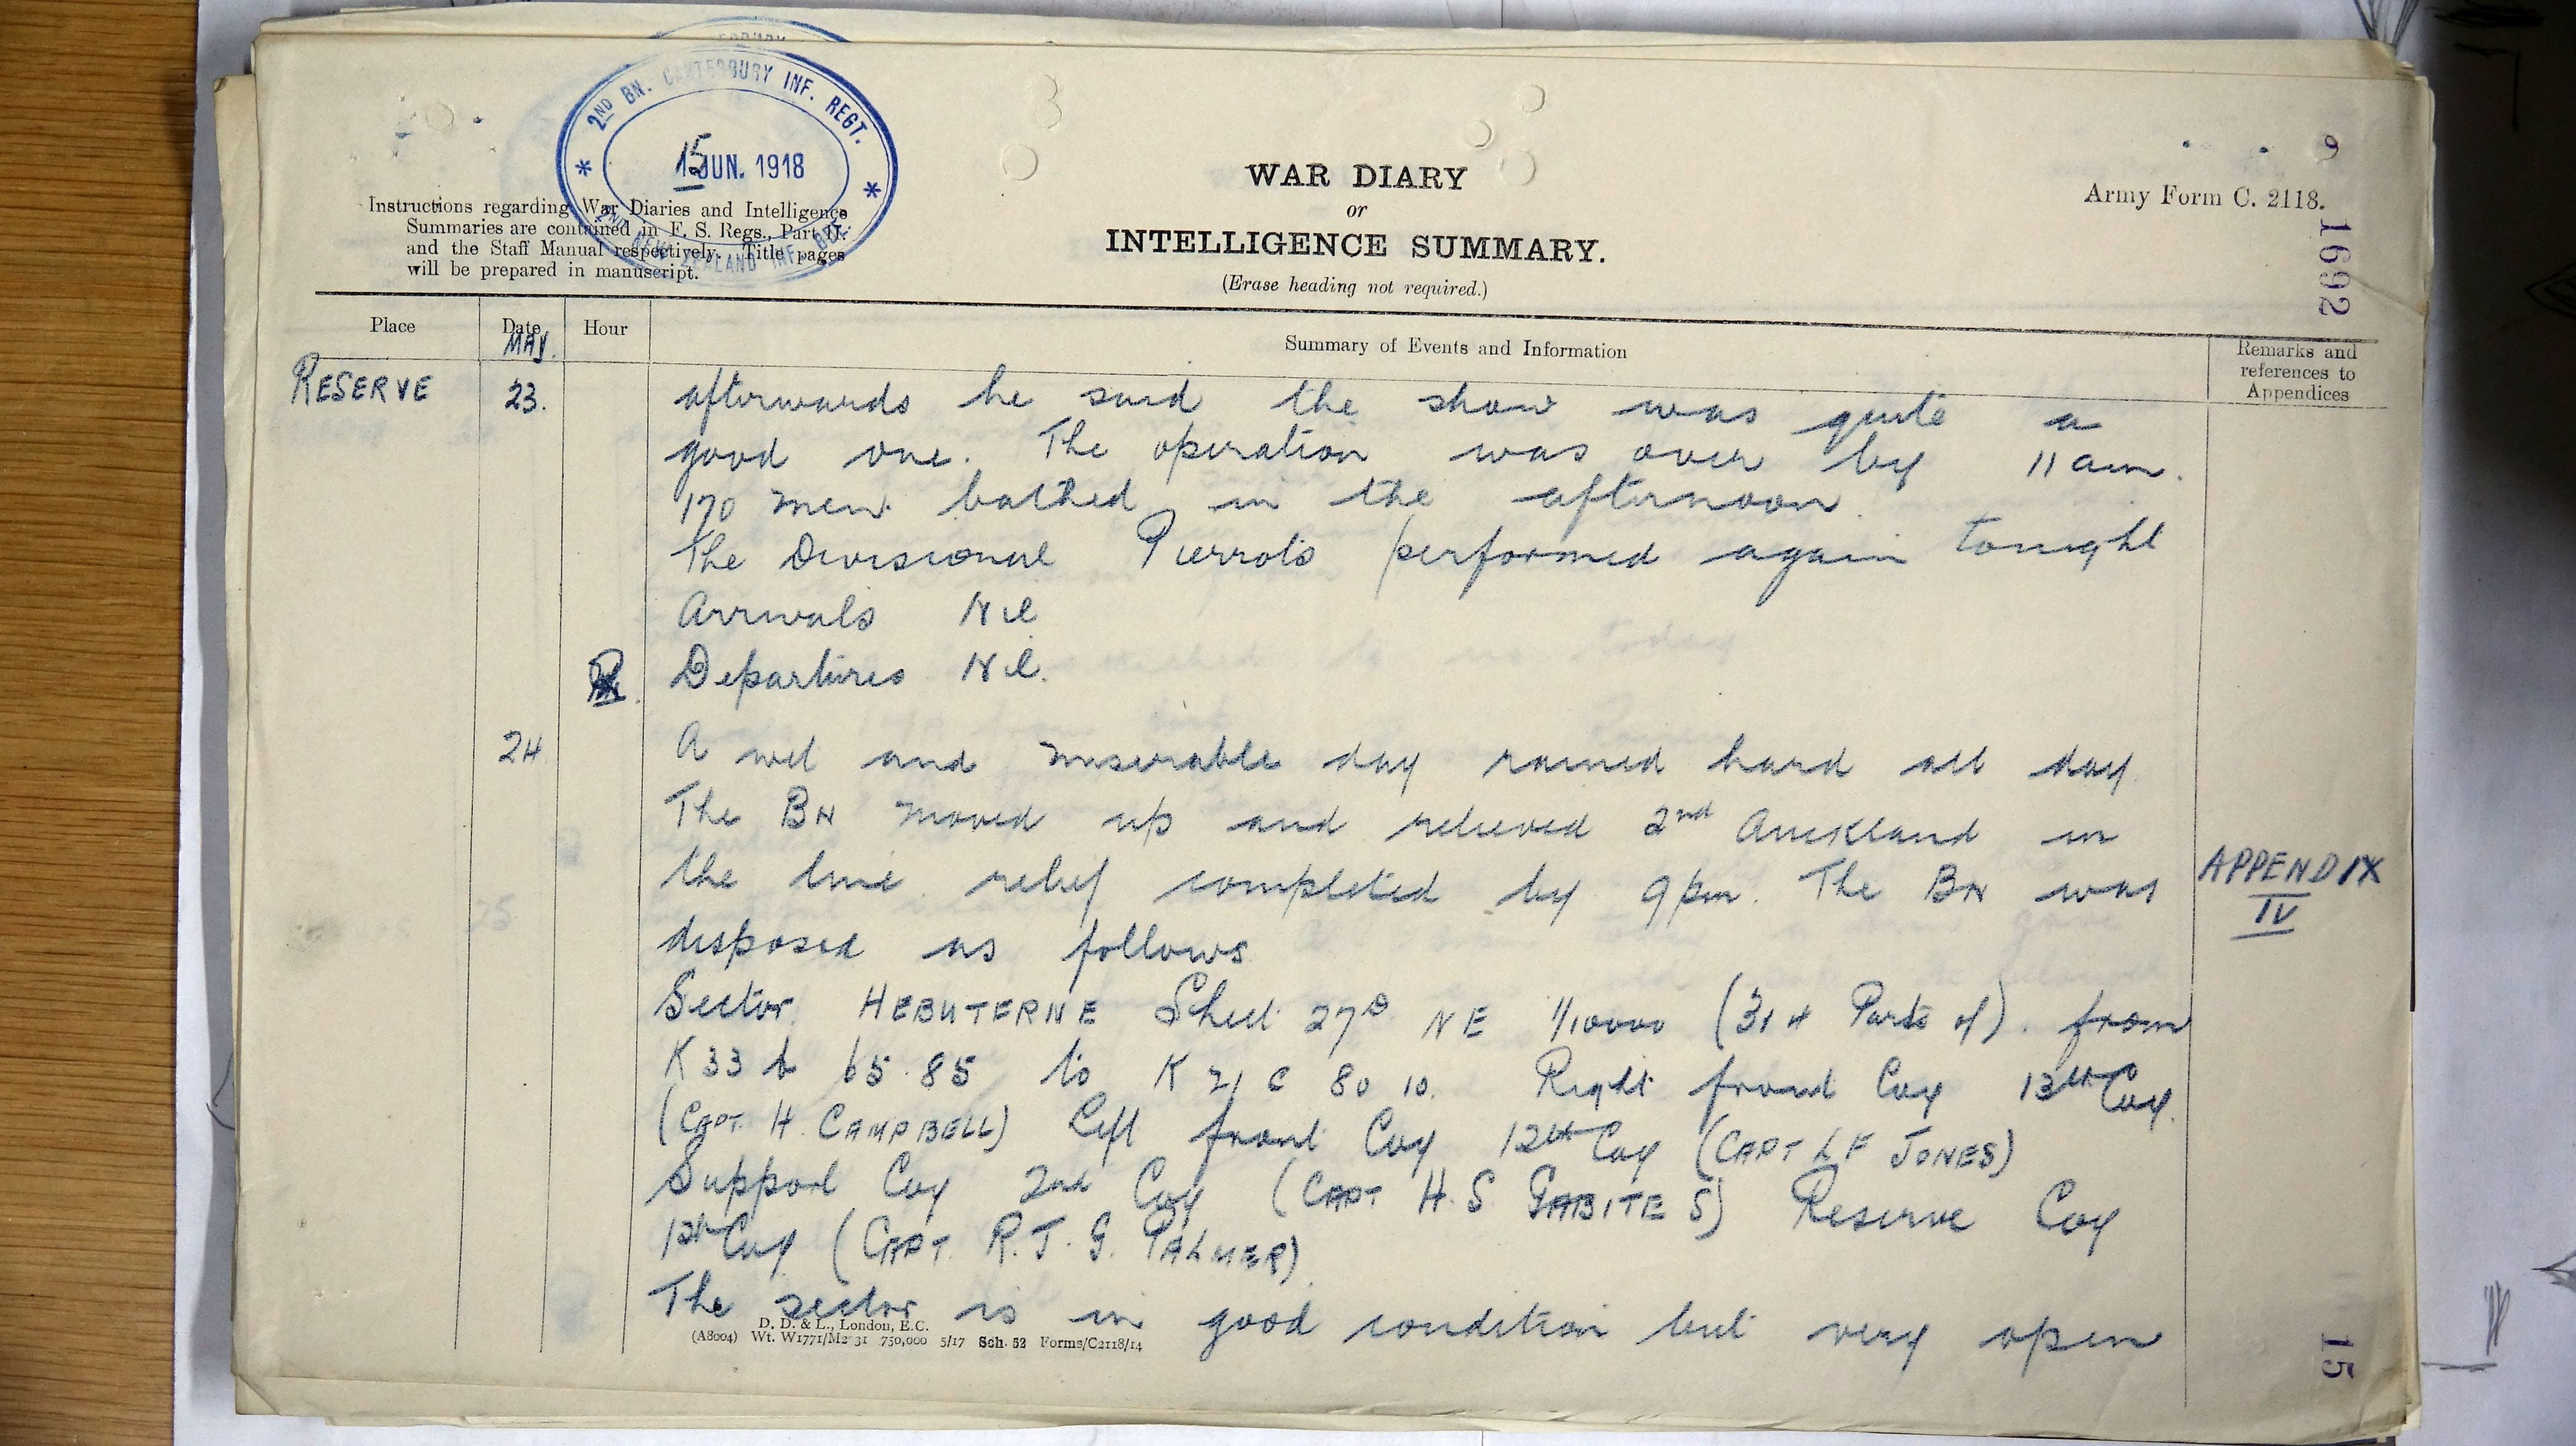 2ND BN. CANTERBURY INF. REGT.
15 JUN. 1918
2ND NEW ZEALAND INF. BDE.
Instructions regarding War Diaries and Intelligence
Summaries are contained in F. S. Regs., Part II.
and the Staff Manual respectively. Title pages
will be prepared in manuscript.
WAR DIARY
or
INTELLIGENCE SUMMARY.
(Erase heading not required.)
Army Form C. 2118.
1692
Place
Date
MAY.
Hour
Summary of Events and Information
Remarks and
references to
Appendices
RESERVE 23. afterwards he said the show was quite a
good one. The operation was over by 11 am.
170 men bathed in the afternoon.
The Divisional Pierrots performed again tonight
Arrivals Nil
Departures Nil.
24 A wet and miserable day rained hard all day
The BN moved up and relieved 2nd Auckland in
the line relief completed by 9 pm. The BN was
APPENDIX
IV
disposed as follows
Sector HEBUTERNE Sheet NE 1/10000 (Parts of). from
K 33 b 65.85 to K 21 c 80 10. Right front Coy 13th Coy
(CAPT. H. CAMPBELL) Left front Coy 12th Coy (CAPT L F JONES)
Support Coy 2nd Coy (CAPT H. S GABITES) Reserve Coy
Coy (CAPT. R. J. G. PALMER).
The sector is in good condition but very open
D. D. & L., London, E.C.
(A8004) Wt. W1771/M2 31 750,000 5/17 Sch. 52 Forms/C2118/14
15